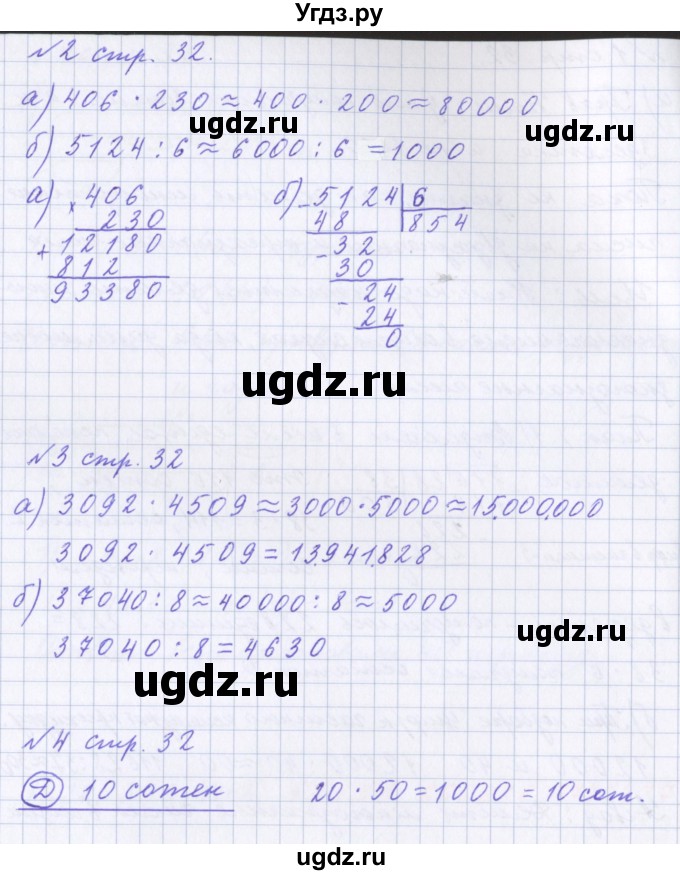 Угдз.ру
№2 стр. 32.
а) 406 · 230 ≈ 400 · 200 ≈ 80000
ugdz.ru ugdz.ru
б) 5124 : 6 ≈ 6000 : 6 = 1000
а) × 406 б) - 5124 | 6
230 48 854
+ 12180 - 32
812 30
93380 - 24
24
0
ugdz.ru
№3 стр. 32
а) 3092 · 4509 ≈ 3000 · 5000 ≈ 15.000.000
3092 · 4509 = 13.941.828
б) 37040 : 8 ≈ 40000 : 8 ≈ 5000
ugdz.ru
37040 : 8 = 4630
ugdz.ru
№4 стр. 32
Д) 10 сотен 20 · 50 = 1000 = 10 сот.
ugdz.ru